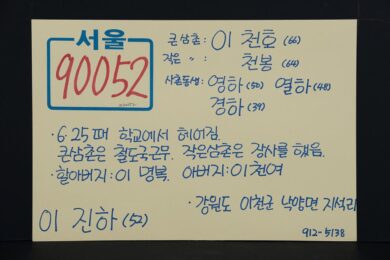 서울
90052
큰삼촌: 이 천호 (66)
작은 〃 : 천봉 (64)
사촌동생: 영하 (50) 열하 (48)
경하 (39)
· 6.25때 학교에서 헤어짐.
큰삼촌은 철도국근무. 작은삼촌은 장사를 했음.
· 할아버지: 이 명복. 아버지: 이천여
· 강원도 이천군 낙양면 지석리
이 진하 (52)
912-5138